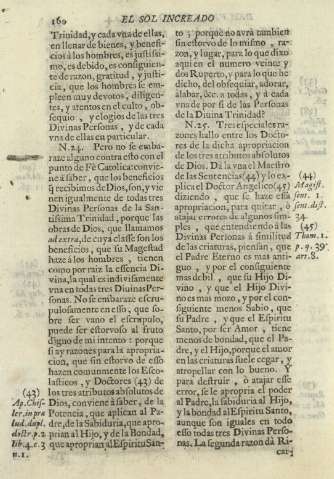 160 EL SOL INCREADO
Trinidad, y cada vna de ellas,
en llenar de bienes, y benefi-
cios à los hombres, es justissi-
mo, es debido, es consiguien-
te de razon, gratitud, y justi-
cia, que los hombres se em-
pleen muy devotos, diligen-
tes, y atentos en el culto, ob-
sequio, y elogios de las tres
Divinas Personas, y de cada
vna de ellas en particular.
N.24. Pero no se emba-
raze alguno contra esto con el
punto de Fè Catholica: convie-
ne à saber, que los beneficios
q̃ recibimos de Dios, son, y vie-
nen igualmente de todas tres
Divinas Personas de la San-
tissima Trinidad, porque las
obras de Dios, que llamamos
ad extra, de cuya classe son los
beneficios, que su Magestad
haze à los hombres, tienen
como por raiz la essencia Di-
vina, la qual es indivisamente
vna en todas tres Divinas Per-
sonas. No se embaraze escru-
pulosamente en esso, que so-
bre ser vano el escrupulo,
puede ser estorvoso al fruto
digno de mi intento: porque
si ay razones para la apropria-
cion, que sin errores de esso
hazen comunmente los Esco-
lasticos, y Doctores (43) de
los tres atributos absolutos de
Dios, conviene à saber, de la
Potencia, que aplican al Pa-
dre, de la Sabiduria, que apro-
prian al Hijo, y de la Bondad,
que aproprian al Espiritu San-
(43)
lib. 4. c. 3
n. 1.
to; porque no avrà tambien
sin estorvo de lo mismo, ra-
zon, y lugar, para lo que dixo
aqui en el numero veinte y
dos Ruperto, y para lo que he
dicho, del obsequiar, adorar,
alabar, &c. à todas, y à cada
vna de por si de las Personas
de la Divina Trinidad?
N.25. Tres especiales ra-
zones hallo entre los Docto-
res de la dicha apropriacion
de los tres atributos absolutos
de Dios. Dà la vna el Maestro
de las Sentencias (44) y lo ex-
plica el Doctor Angelico (45)
diziendo, que se haze essa
apropriacion, para quitar, ò
atajar errores de algunos sim-
ples, que entendiendo à las
Divinas Personas à similitud
de las criaturas, piensan, que
el Padre Eterno es mas anti-
guo, y por el consiguiente
mas debil, que su Hijo Di-
vino, y que el Hijo Divi-
no es mas mozo, y por el con-
siguiente menos Sabio, que
su Padre, y que el Espiritu
Santo, por ser Amor, tiene
menos de bondad, que el Pa-
dre, y el Hijo, porque el amor
en las criaturas suele cegar, y
atropellar con lo bueno. Y
para destruir, ò atajar esse
error, se le apropria el poder
al Padre, la sabiduria al Hijo,
y la bondad al Espiritu Santo,
aunque son iguales en todo
esso todas tres Divinas Perso-
nas. La segunda razon dà Ri-
car-
(44)
Magist.
sent. 1.
sent. dist.
34.
(45)
Tham. 1.
p. q. 39.
art. 8.